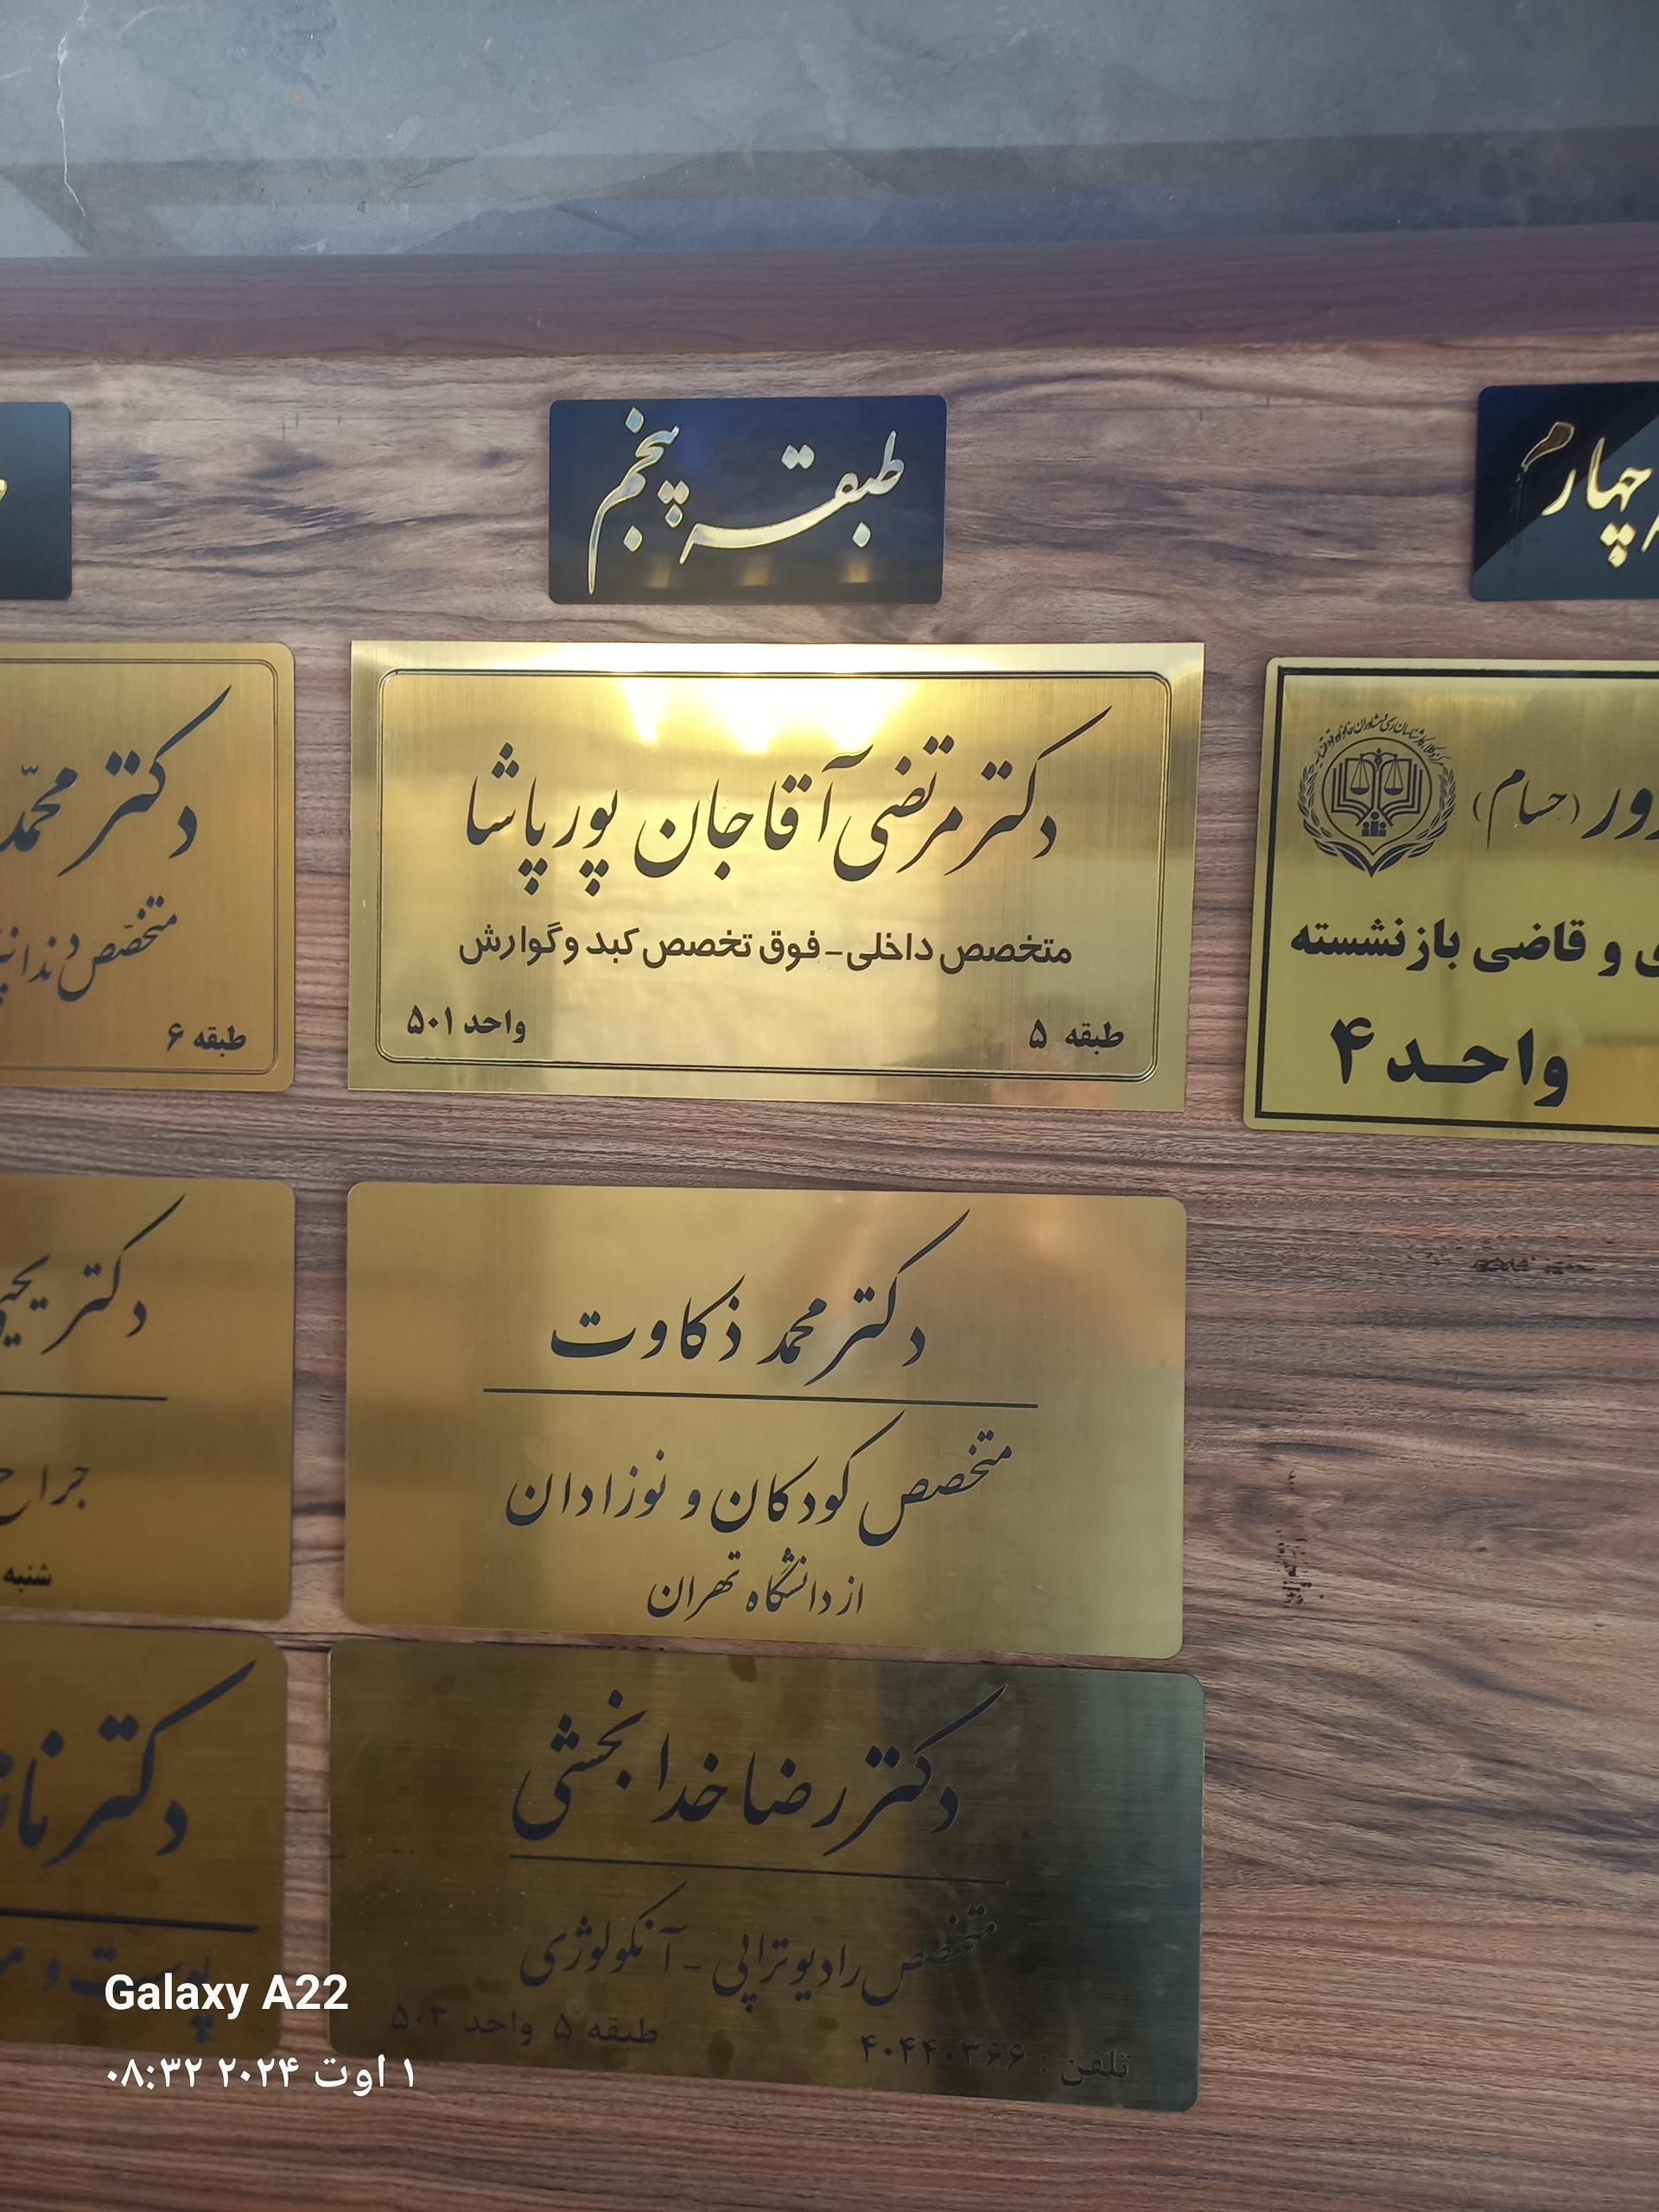 طبقه پنجم
دکتر مرتضی آقاجان پورپاشا
متخصص داخلی-فوق تخصص کبد و گوارش
طبقه ۵
واحد ۵۰۱
دکتر محمد ذکاوت
متخصص کودکان و نوزادان
از دانشگاه تهران
دکتر رضا خدابخشی
متخصص رادیوتراپی - آنکولوژی
تلفن : ۴۰۴۴۰۳۶۶
طبقه ۵ واحد ۵۰۳
چهارم
(حسام)
و قاضی بازنشسته
واحد ۴
دکتر محمد
متخصص
طبقه ۶
دکتر
جراح
شنبه
دکتر
پوست و
Galaxy A22
۱ اوت ۲۰۲۴ ۰۸:۳۲